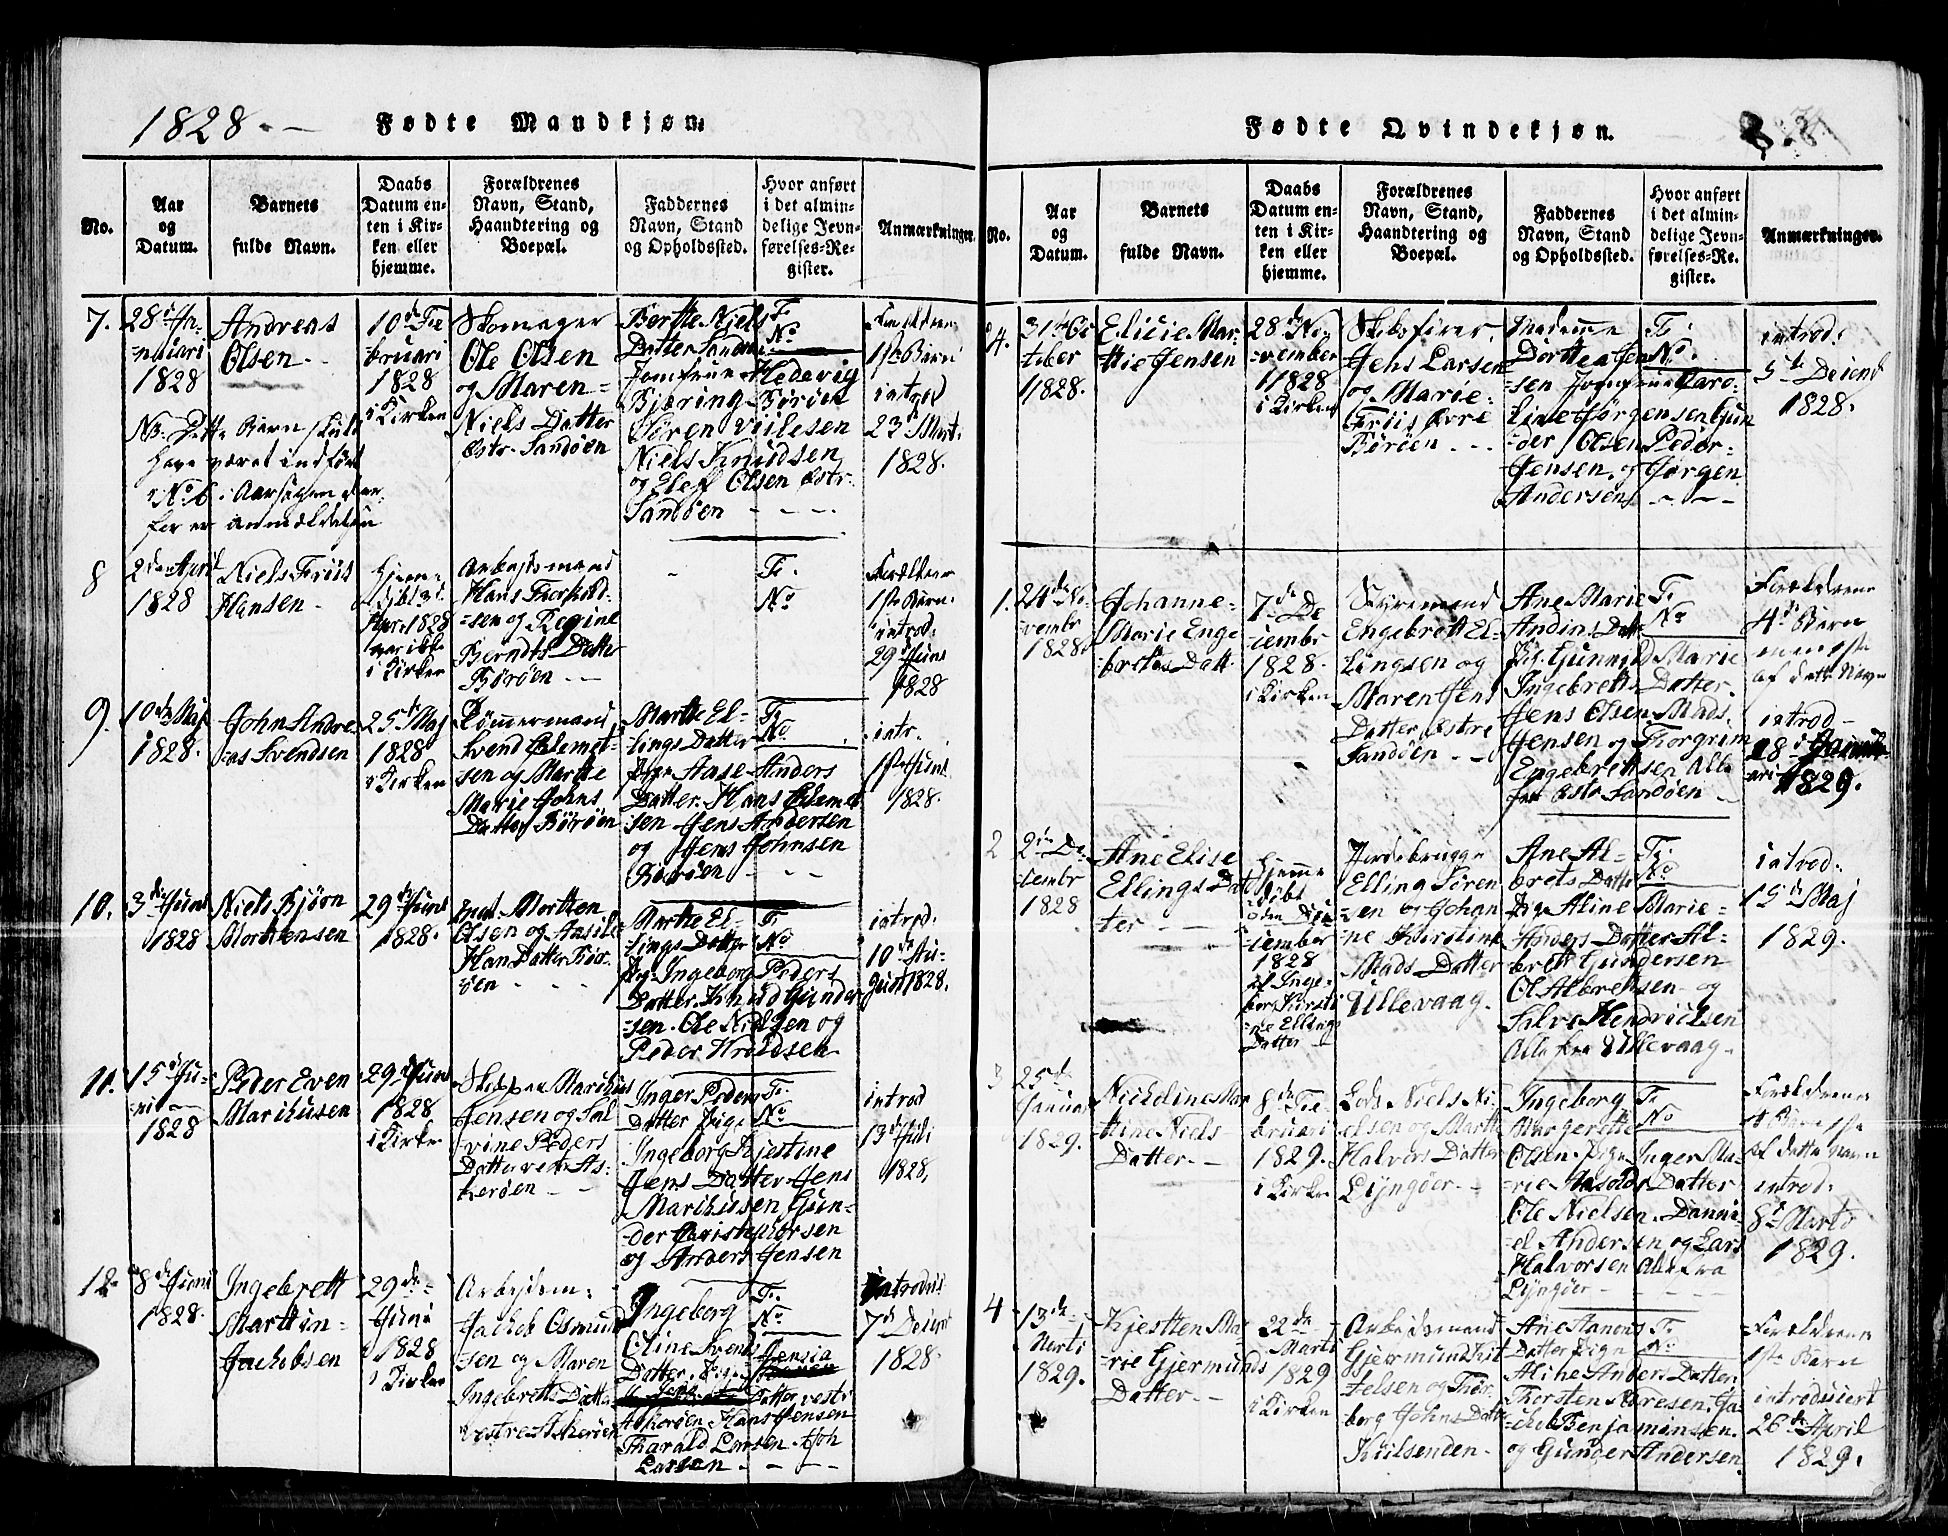 1828.-
Födte Mandkjøn.
No.
Aar
og
Datum.
Barnets
fulde Navn.
Daabs
Datum en-
ten i Kir-
ken eller
hjemme.
Forældrenes
Navn, Stand,
Haandtering og
Boepæl.
Faddernes
Navn, Stand
og Opholdssted.
Hvor anført
i det almin-
delige Jevn-
førelses-Re-
gister.
Anmærkninger.
7.
28d Ja-
nuari
1828
Andreas
Olsen
10d Fe
bruari
1828
i Kirken
Skomager
Ole Olsen
og Maren
Niels Datter
østr. Sandøen
Berthe Niels
Datter Sandøe
Jomfrue Hedevig
Bjering Börøen
Sören
Niels Knudsen
og Elef Olsen østr.
Sandøen
F.
No
1ste Barn
introd
23d Mart.
1828.
NB. Dette Barn skulde
have været indført
No 6
8
2den April
1828
Niels Friis
Hansen
April 1828
i Kirken
Arbejdsmand
Hans Thorkild-
sen og Regine
Berndts Datter
Börøen
F.
No
Forældrene
1ste Barn.
introd.
29d Juni
1828
9.
10de Maj
1828.
John Andre
as Svendsen
25d Maj
1828
i Kirken
Tömmermand
Svend Clemet-
sen og Marthe
Marie Johns
Datter Börøen
Marthe El-
lings Datter
Pige Aase Anders
Datter. Hans Clemet
sen Jens Andersen
og Jens Johnsen
Börøen
F.
No
intr.
1ste Juni
1828.
10.
3die Juni
1828
Niels Bjørn
Morttensen
29de Juni
1828.
Mortten
Olsen og
Hans Datter Bør-
øen
Marthe El-
lings Datter
Pige Ingeborg Peders
Datter. Knud Gunder
sen. Ole Nielsen og
Peder Knudsen
F.
No
introd.
10de Au-
gust 1828.
11.
15d Ju-
ni
1828
Peder Even
Marihusen
29d Juni
1828
i Kirken
Skipper Marihus
Jensen og Sal-
vine Peders
Datter vestr As-
kerøen
Inger Peders
Datter Pige
Ingeborg Kjestine
Jens Datter Jens
Marihusen Gun-
der Christophersen
og Anders Jensen
F.
No
introd
13d Juli
1828.
12.
8de Juni
1828.
Ingebrett
Marttin
Jachobsen
29de
Juni
1828
i Kirken
Arbejdsm:
Jachob Osmund
sen og Maren
Ingebretts Datter
vestre Askerøen
Ingeborg
Oline Svends
Datter. Pige Jensia
Datter vestr
Askerøen. Hans Jensen
Tharald Larsen. Joh
Larsen
F.
No
introduc
7d Decem
1828.
Födte Qvindekjøn.
No.
Aar
og
Datum.
Barnets
fulde Navn.
Daabs
Datum en-
ten i Kir-
ken eller
hjemme.
Forældrenes
Navn, Stand,
Haandtering og
Boepæl.
Faddernes
Navn, Stand
og Opholdssted.
Hvor anført
i det almin-
delige Jevn-
førelses-Re-
gister.
Anmærkninger.
24.
31 Oc
tober
1828.
Elicie Mar-
thie Jensen
28de No-
vember
1828
i Kirken
Skibsfører
Jens Larsen
og Marie
Friis øvre
Börøen
Madame
Dorthea Jen
sen Jomfrue Caro-
line Jørgensen Gun
der Olsen Peder
Jensen og Jørgen
Andersen
F.
No.
introd:
5te Decemb
1828.
1.
24de No
vembr
1828.
Johanne
Marie Enge
bretts Datt.
7de De
cembr
1828.
i Kirken
Styremand
Engebrett El-
lingsen og
Maren Jens
Datter østre
Sandøen
Ane Marie
Andins Datt
Pig. Gunnild Marie
Ingebretts Datter.
Jens Olsen. Mads
Jensen og Thorgrim
Engebrettsen Alle
fra østr Sandøen
F.
No
Forældrene
4de Barn
af dette Navn
introd
18d Janu
ari
1829.
2
2den De
cembr
1828
Ane Elise
Ellings Dat
ter
hjemme
døbt
den
cember
1828
af Inge-
borg Kirsti
ne Ellings
Datter
Elling Sören
sen og Johan
ne Kirstine
Mads Datter
Ullevaag.
Ane Al-
brets Datter
Pige Aline Marie
Anders Datter Al-
brett Gundersen
Ol Albretsen og
Salve Hendricksen
Alle fra Ullevaag.
F.
No
introd.
15de Maj
1829.
3
25de
Januar
1829.
Nicholine Mar
thine Niels
Datter
8de Fe-
bruari
1829.
i Kirken
Lods Niels Ni-
elsen og Marthe
Halvors Datter
Lyngøer
Ingeborg
Margrethe
Olsen. Pige Inger Ma-
rie Datter
Ole Nielsen. Danni-
el Andersen og Lars
Halvorsen Alle fra
Lyngøer
F.
No
Forældrene
af dette Navn
introd:
8de Marts
1829.
4
13de
Marti
1829.
Kjestten Ma-
rie Gjermunds
Datter
22de
Marti
1829
i Kirken
Arbeidsmand
Gjermund Kit
telsen og Thor
borg Johns Datter
Kiilsenden
Ane
Datter Pige
Aline Anders Datter.
Thorsten Andresen. Ja-
chob Benjaminsen.
og Gunder Andersen.
F.
No
Forældrene
1ste Barn
introduceret
26de April
1829.